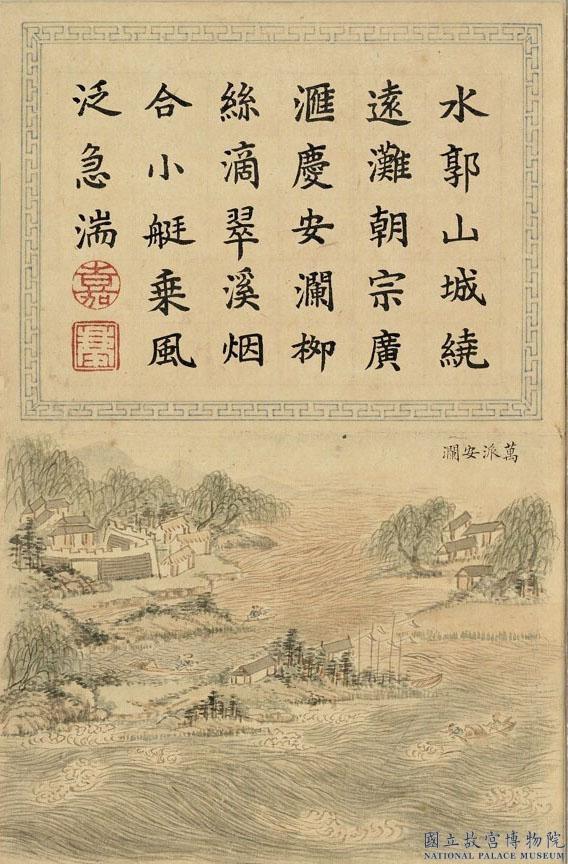 水郭山城繞
遠灘朝宗廣
滙慶安瀾柳
絲滴翠溪烟
合小艇乗風
泛急湍
嘉
萬派安瀾
國立故宮博物院
NATIONAL PALACE MUSEUM